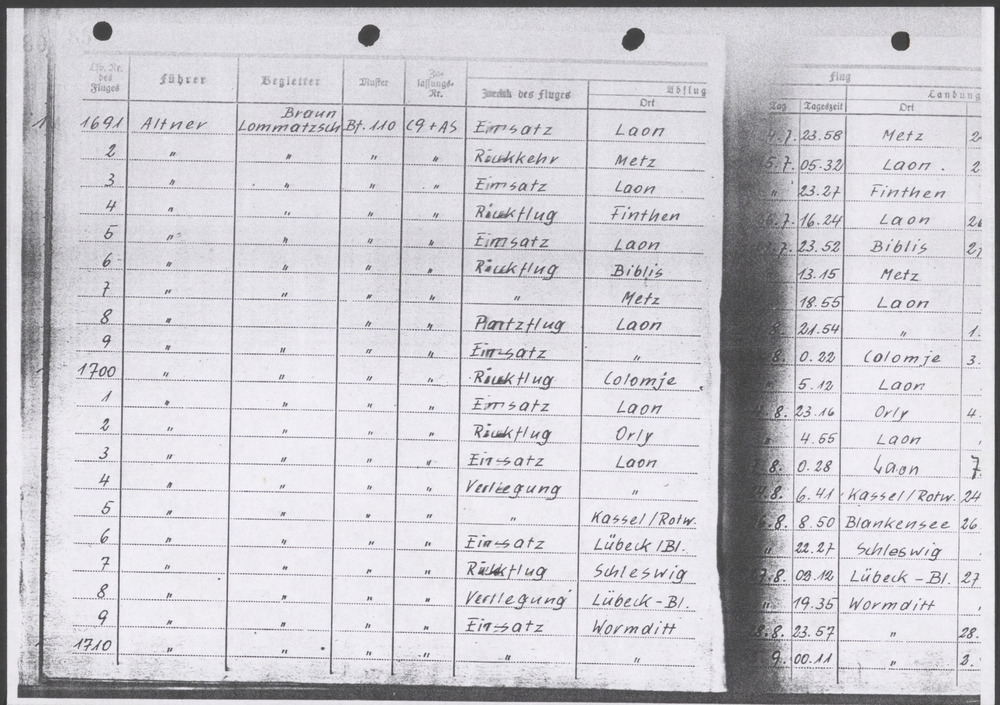 Lfd. Nr. des Fluges Führer Begleiter Muster Zulassungs-Nr. Zweck des Fluges Abflug Ort Flug Tag Tageszeit Landung Ort
Braun
1691 Altner Lommatzsch Bf. 110 C9+AS Einsatz Laon 7. 23.58 Metz
2 " " " " Rückkehr Metz 5.7. 05.32 Laon
3 " " " " Einsatz Laon " 23.27 Finthen
4 " " " " Rückflug Finthen 7. 16.24 Laon
5 " " " " Einsatz Laon 7. 23.52 Biblis
6 " " " " Rückflug Biblis 13.15 Metz
7 " " " " " Metz 18.55 Laon
8 " " " Platzflug Laon 8. 21.54 " 1.
9 " " " " Einsatz " 8. 0.22 Colomje 3.
1700 " " " " Rückflug Colomje " 5.12 Laon
1 " " " " Einsatz Laon 8. 23.16 Orly 4.
2 " " " " Rückflug Orly " 4.55 Laon
3 " " " " Einsatz Laon 8. 0.28 Laon 7.
4 " " " " Verlegung " 8. 6.41 Kassel/Rotw. 24
5 " " " " " Kassel/Rotw. 8. 8.50 Blankensee 26
6 " " " " Einsatz Lübeck/Bl. " 22.27 Schleswig
7 " " " " Rückflug Schleswig 8. 09.12 Lübeck-Bl. 27
8 " " " " Verlegung Lübeck-Bl. " 19.35 Wormditt
9 " " " " Einsatz Wormditt 8. 23.57 " 28.
1710 " " " " " " 9. 00.11 " 2.